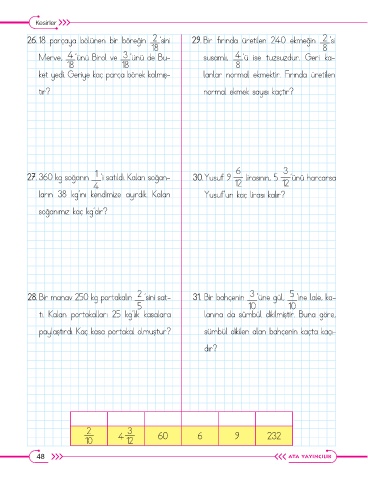 Kesirler
26. 18 parçaya bölünen bir böreğin 2/18 'sini
Merve, 4/18 'ünü Birol ve 3/18 'ünü de Bu-
ket yedi. Geriye kaç parça börek kalmış-
tır?
27. 360 kg soğanın 1/4 'i satıldı. Kalan soğan-
ların 38 kg'ını kendimize ayırdık. Kalan
soğanımız kaç kg'dır?
28. Bir manav 250 kg portakalın 2/5 sini sat-
tı. Kalan portakalları 25 kg'lık kasalara
paylaştırdı. Kaç kasa portakal olmuştur?
29. Bir fırında üretilen 240 ekmeğin 2/8 'si
susamlı, 4/8 'ü ise tuzsuzdur. Geri ka-
lanlar normal ekmektir. Fırında üretilen
normal ekmek sayısı kaçtır?
30. Yusuf 9 6/12 lirasının, 5 3/12 ünü harcarsa
Yusuf'un kaç lirası kalır?
31. Bir bahçenin 3/10 'üne gül, 5/10 'ine lale, ka-
lanına da sümbül dikilmiştir. Buna göre,
sümbül dikilen alan bahçenin kaçta kaçı-
dır?
2/10 4 3/12 60 6 9 232
48 ATA YAYINCILIK